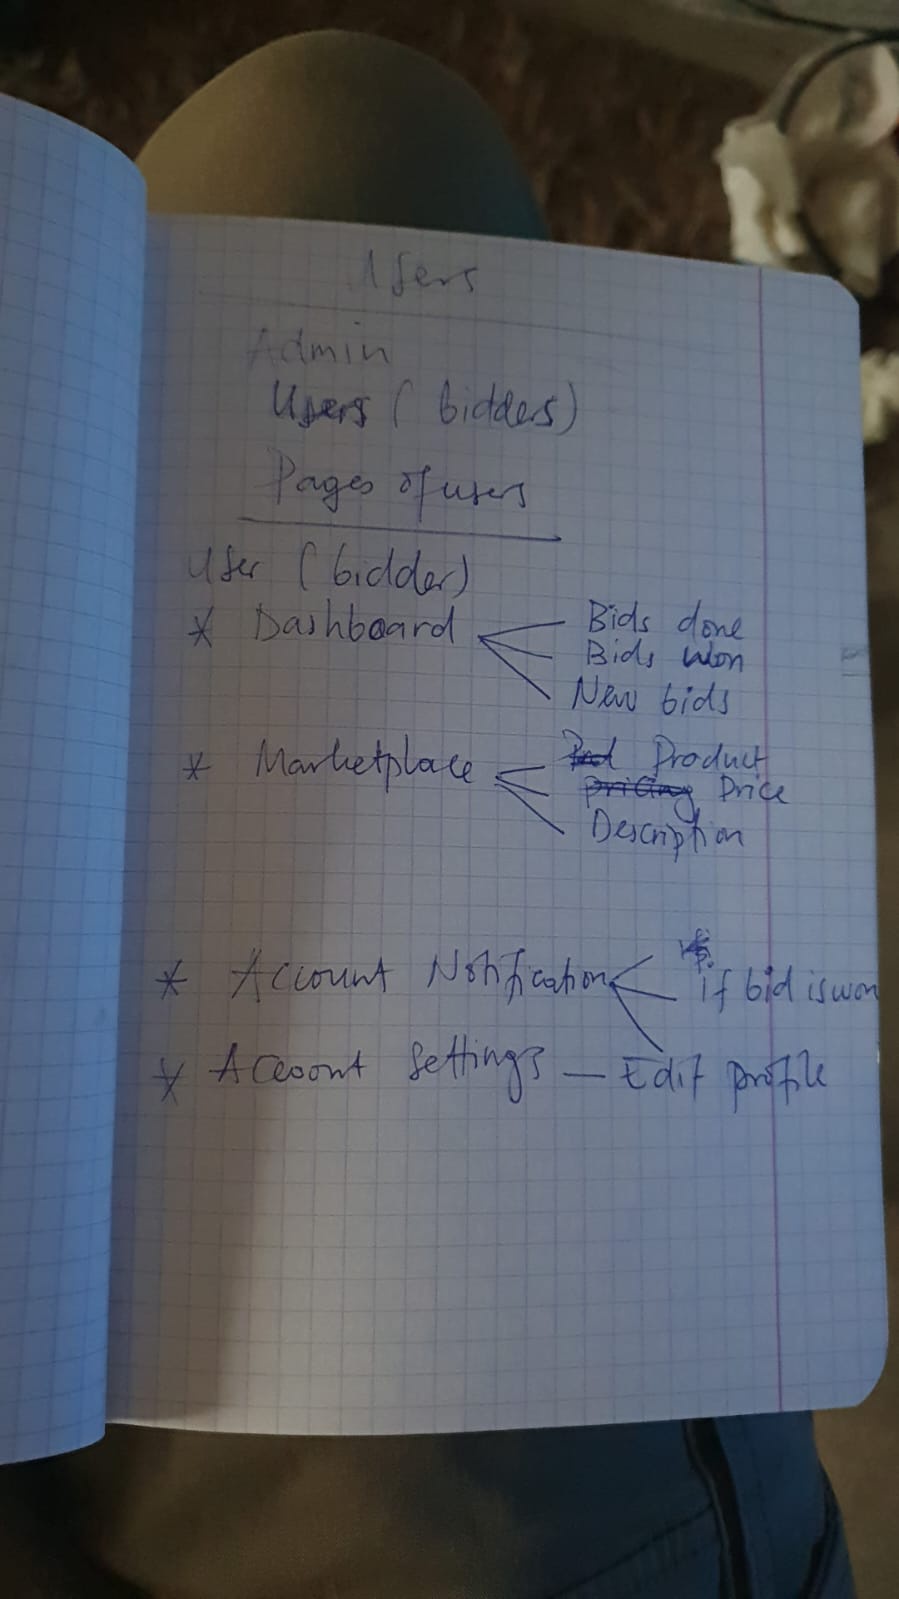 Users
Admin
Users (bidders)
Pages of users
User (bidder)
* Dashboard
Bids done
Bids won
New bids
* Marketplace
Product
pricing Price
Description
* Account Notification
if bid is won
* Account Settings — Edit profile